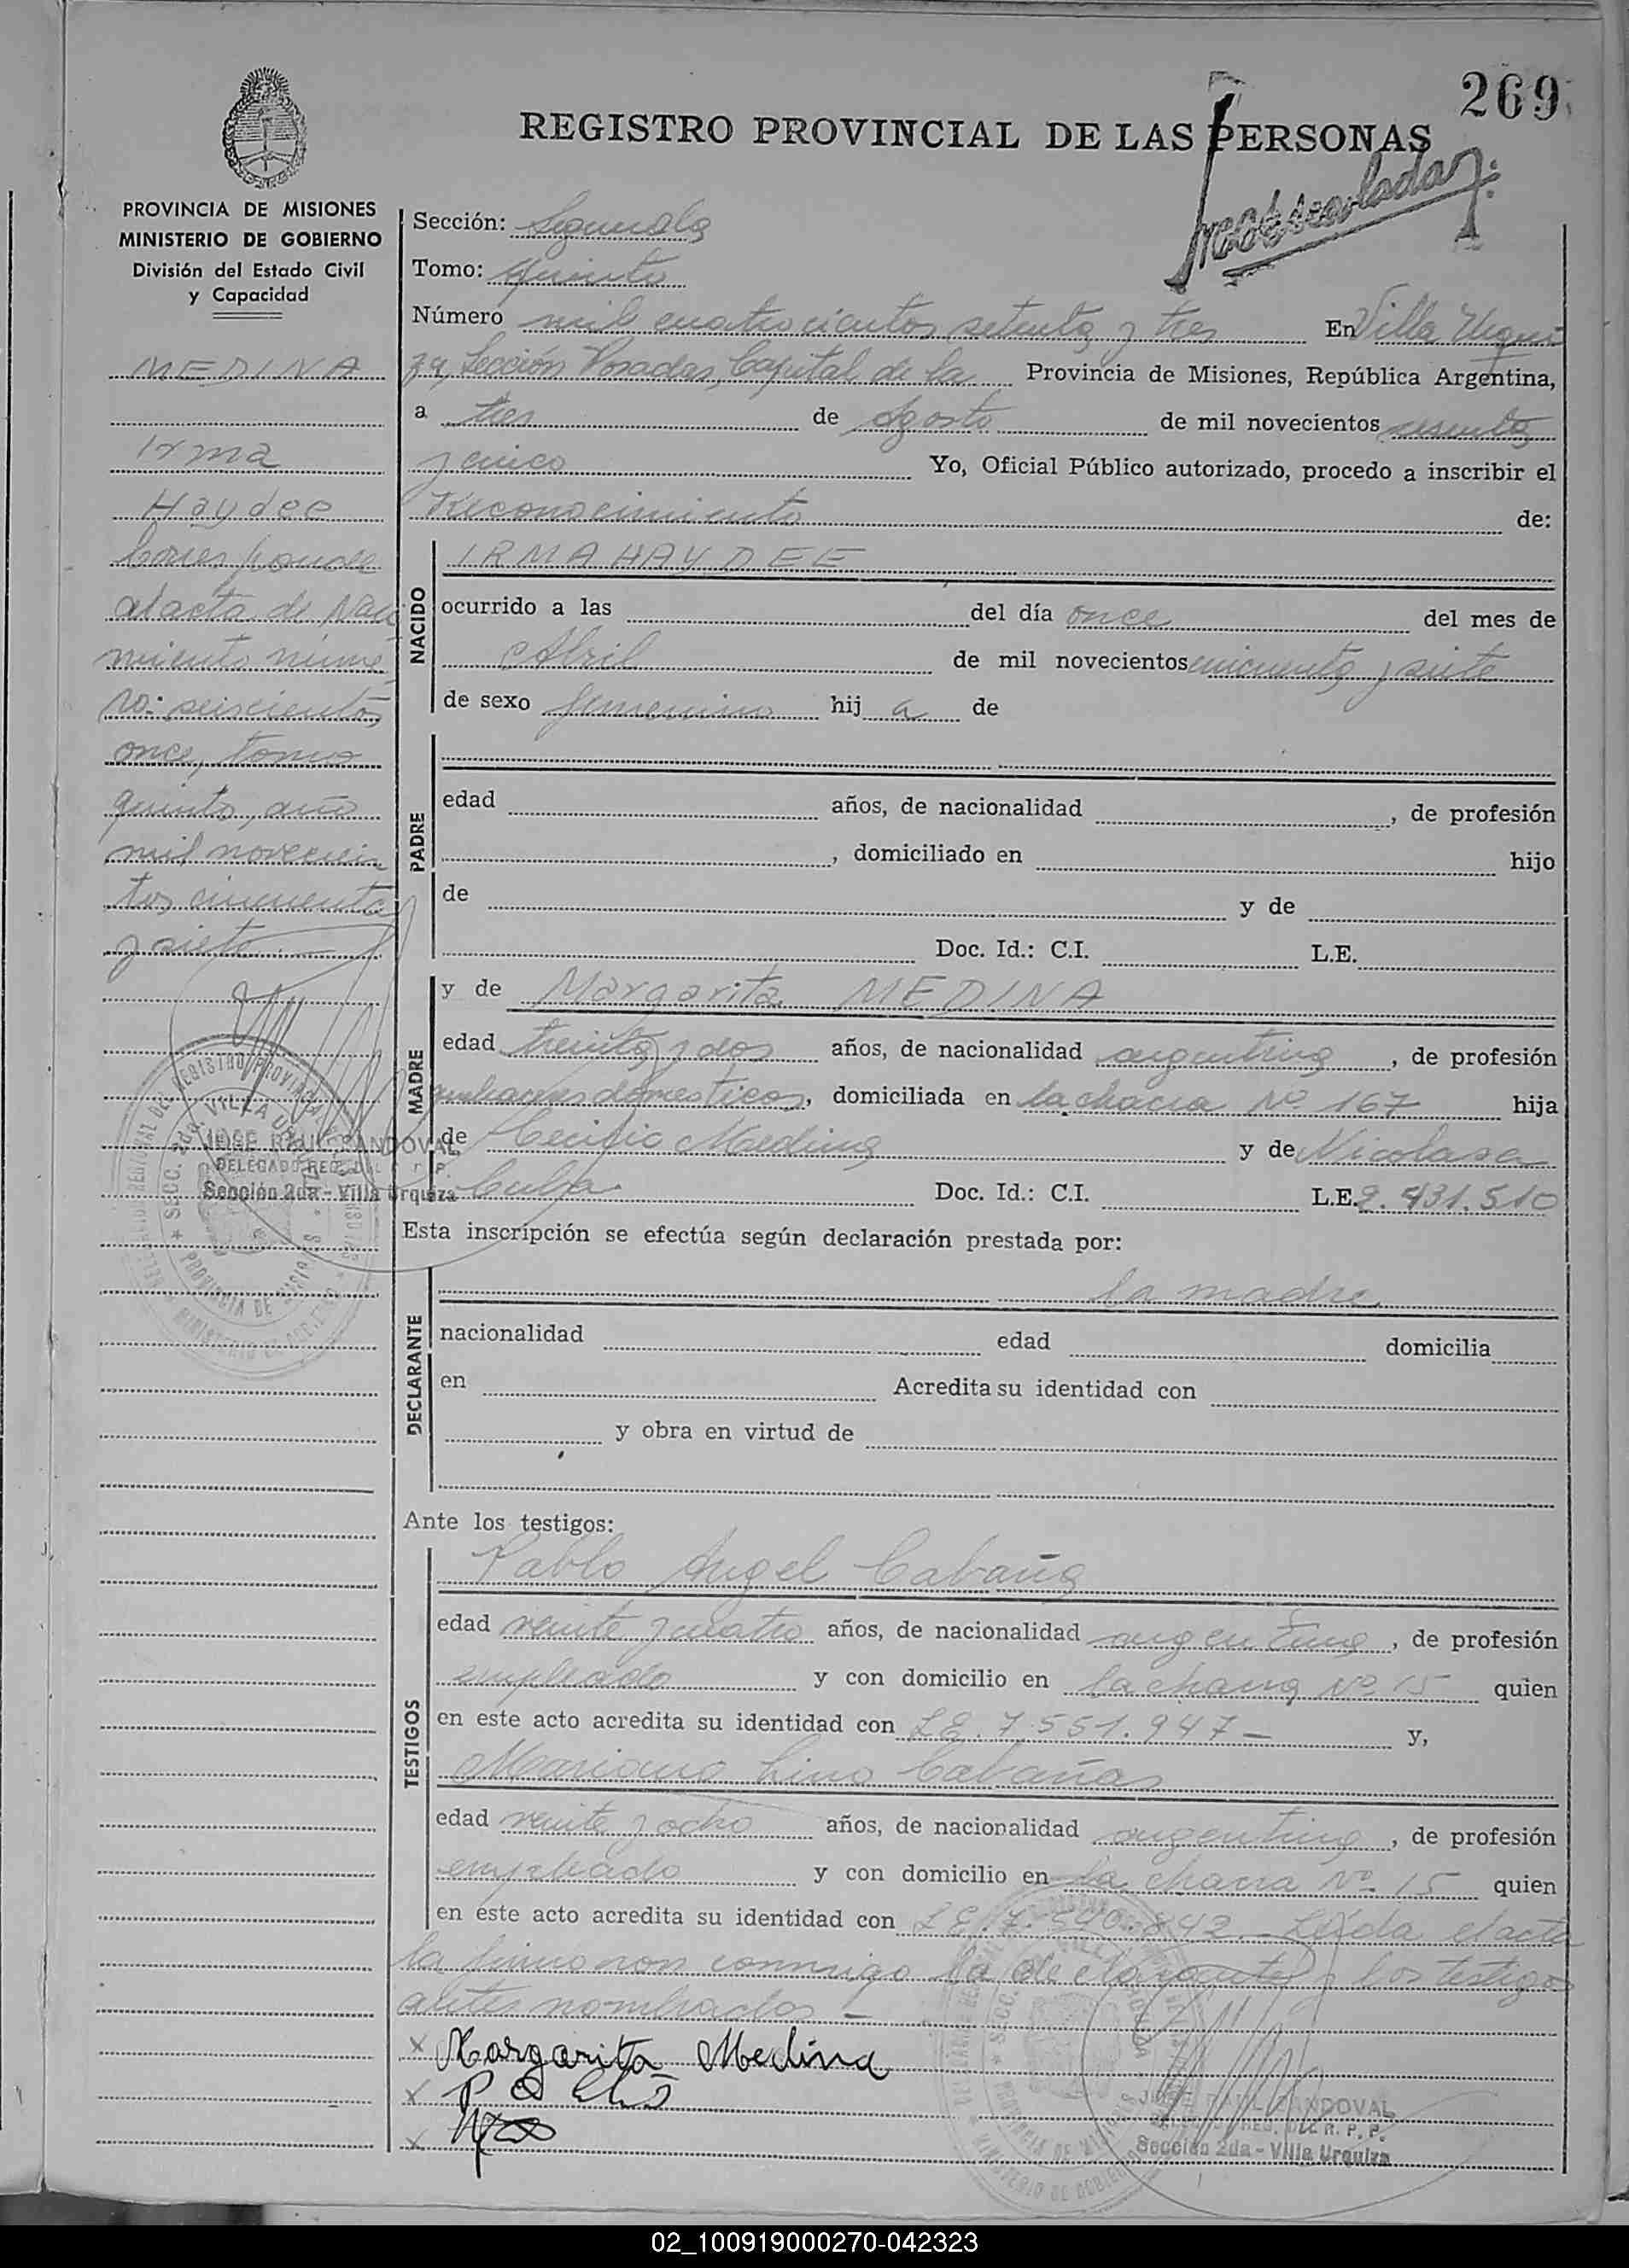 269
REGISTRO PROVINCIAL DE LAS PERSONAS
PROVINCIA DE MISIONES
MINISTERIO DE GOBIERNO
División del Estado Civil
y Capacidad
MEDINA
Irma
Haydee
Corresponde
al acta de Naci
miento núme
ro: seiscientos
once, tomo
quinto, año
mil novecien
tos cincuenta
y siete
JOSE RAUL SANDOVAL
DELEGADO REG. DEL R. P. P.
Sección 2da - Villa Urquiza
Sección: Segunda
Tomo: quinto
Número mil cuatrocientos setenta y tres En Villa Urqui
za, Sección Posadas, Capital de la Provincia de Misiones, República Argentina,
a tres de Agosto de mil novecientos sesenta
y cinco Yo, Oficial Público autorizado, procedo a inscribir el
Reconocimiento de:
NACIDO
IRMA HAYDEE
ocurrido a las del día once del mes de
Abril de mil novecientos cincuenta y siete
de sexo femenino hij a de
PADRE
edad años, de nacionalidad , de profesión
, domiciliado en hijo
de y de
Doc. Id.: C.I. L.E.
MADRE
y de Margarita MEDINA
edad treinta y dos años, de nacionalidad argentina , de profesión
quehaceres domesticos, domiciliada en la chacra Nº 167 hija
de Medina y de Nicolasa
Doc. Id.: C.I. L.E. 2.431.510
Esta inscripción se efectúa según declaración prestada por:
DECLARANTE
la madre
nacionalidad edad domicilia
en Acredita su identidad con
y obra en virtud de
Ante los testigos:
TESTIGOS
Pablo Angel Cabaña
edad veinte y cuatro años, de nacionalidad argentina , de profesión
empleado y con domicilio en la chacra Nº 15 quien
en este acto acredita su identidad con L.E. 7.551.947 — y,
Mariano Lino Cabañas
edad veinte y ocho años, de nacionalidad argentina , de profesión
empleado y con domicilio en la chacra Nº 15 quien
en este acto acredita su identidad con L.E. 7.540.842.- Leída el acta
la firmaron conmigo la declarante y los testigos
antes nombrados —
x Margarita Medina
x
x
JOSE RAUL SANDOVAL
DELEGADO REG. DEL R. P. P.
Sección 2da - Villa Urquiza
02_100919000270-042323